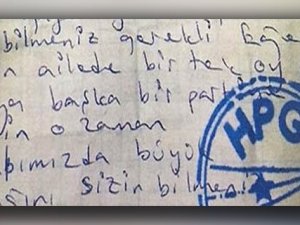 bilmeniz gerekli Eğe
ailede bir tek oy
başka bir par
o zaman
bımızda büyü
sizin bilmeni
HPG